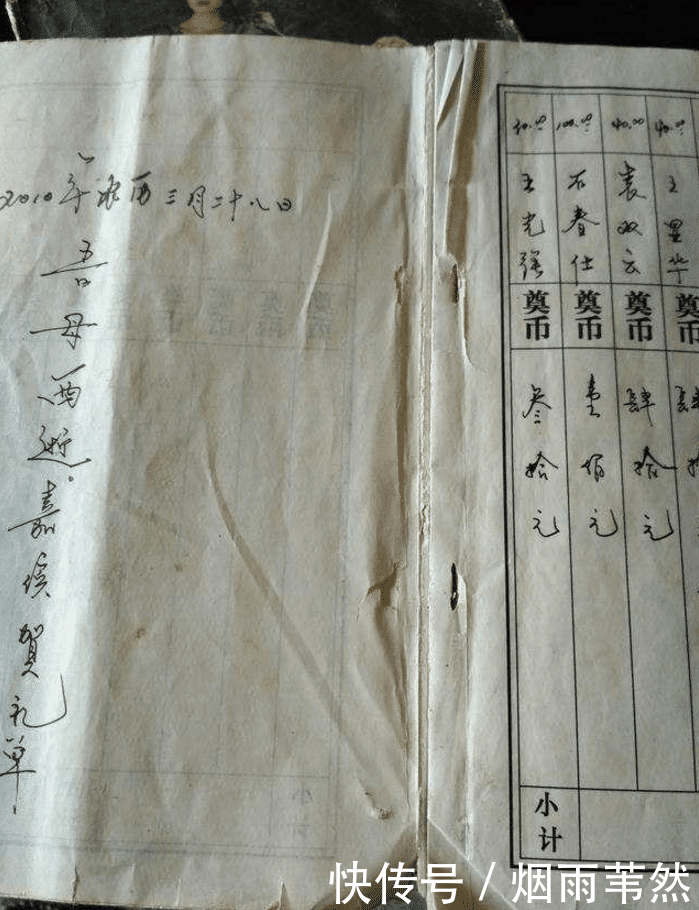 2010年农历三月二十八日
吾母西逝。嘉候贺礼单
30.00 100.00 40.00 40.00
王光强 石春仕 袁双云 王里华
奠币 奠币 奠币 奠币
叁拾元 壹佰元 肆拾元 肆拾
小计
快传号/烟雨苇然